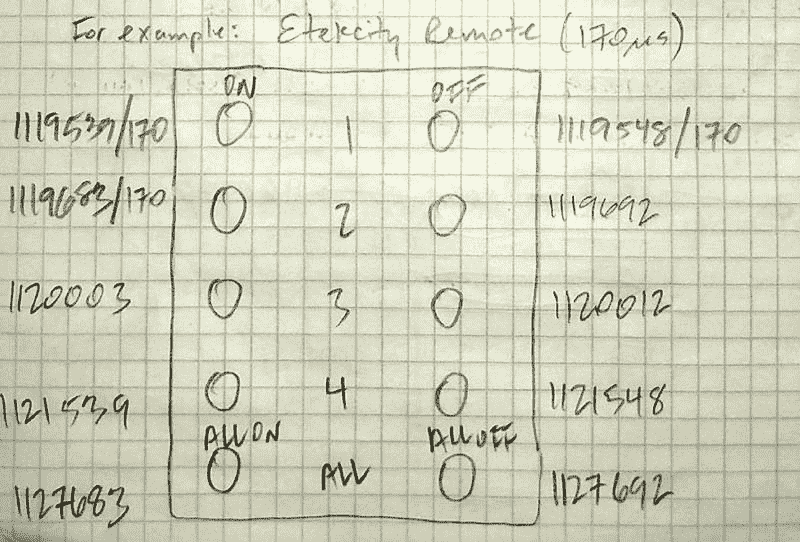 For example: Etekcity Remote (170µs)
ON OFF
1119539/170 1 1119548/170
1119683/170 2 1119692
1120003 3 1120012
1121539 4 1121548
ALL ON ALL OFF
1127683 ALL 1127692